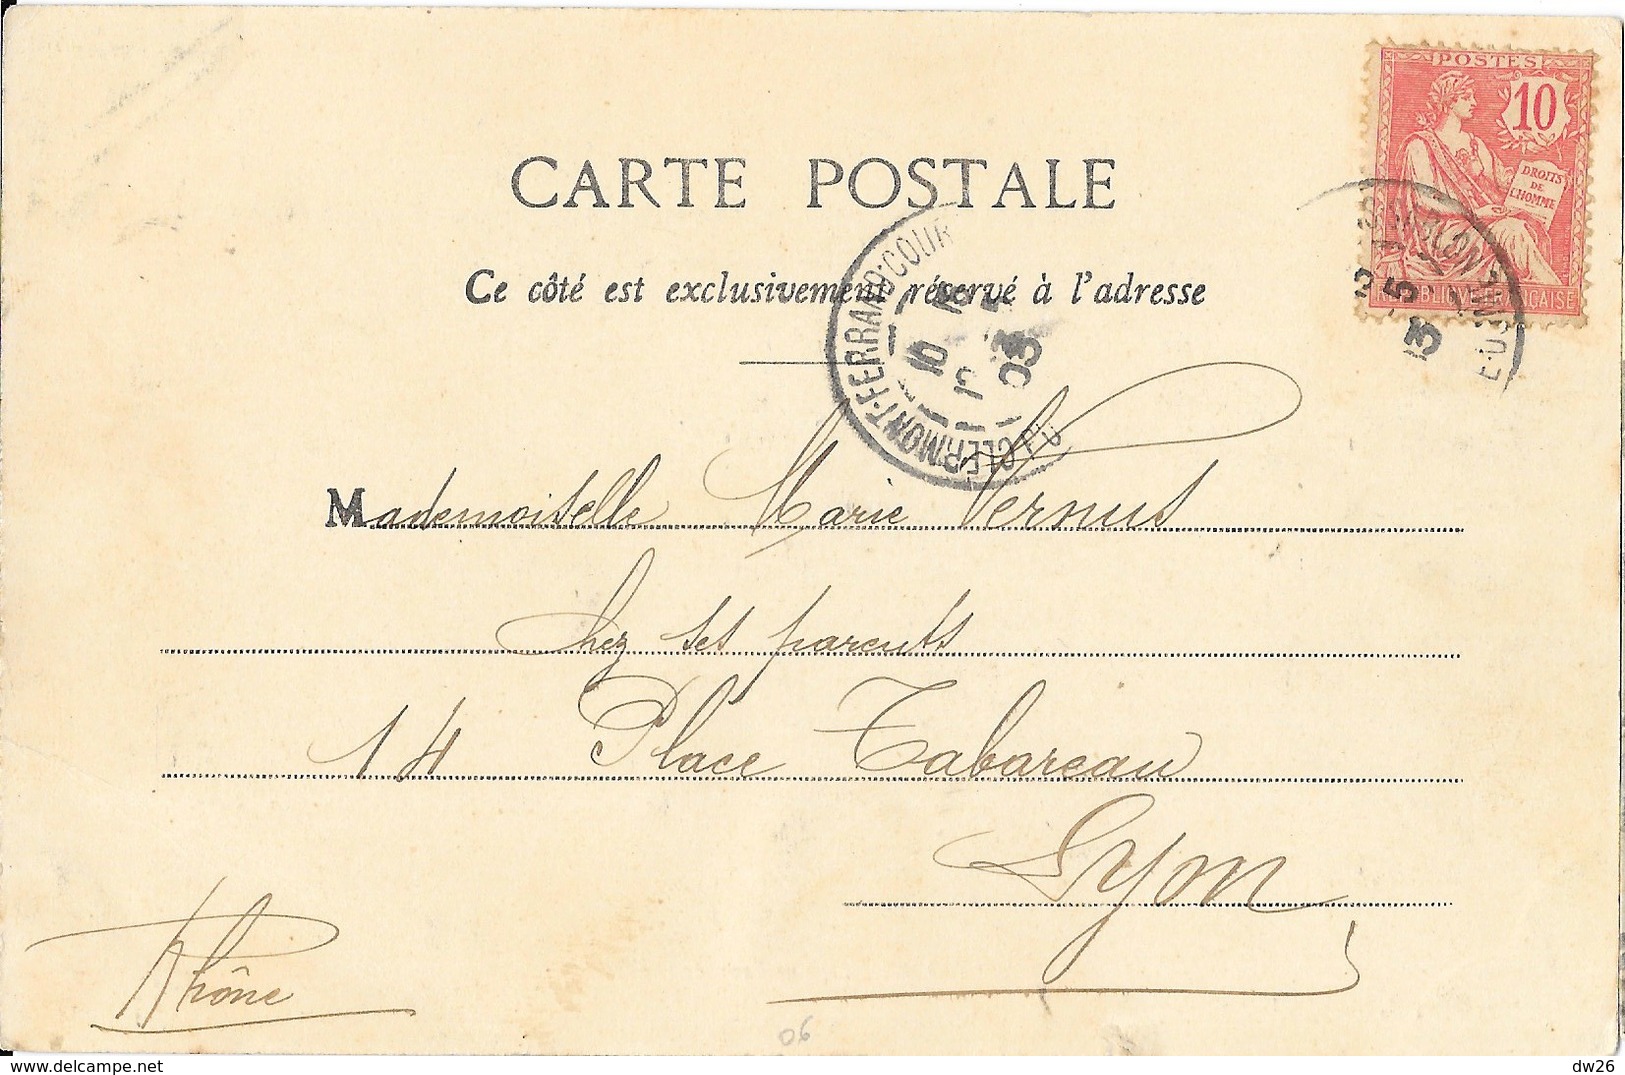 POSTES
10
DROITS
DE
L'HOMME
CARTE POSTALE
Ce côté est exclusivement réservé à l'adresse
CLERMONT-FERRAND-COUR
16
5
03
Mademoiselle Marie Vernus
Chez ses parents
14 Place Tabareau
Lyon
Rhône
06
dw26